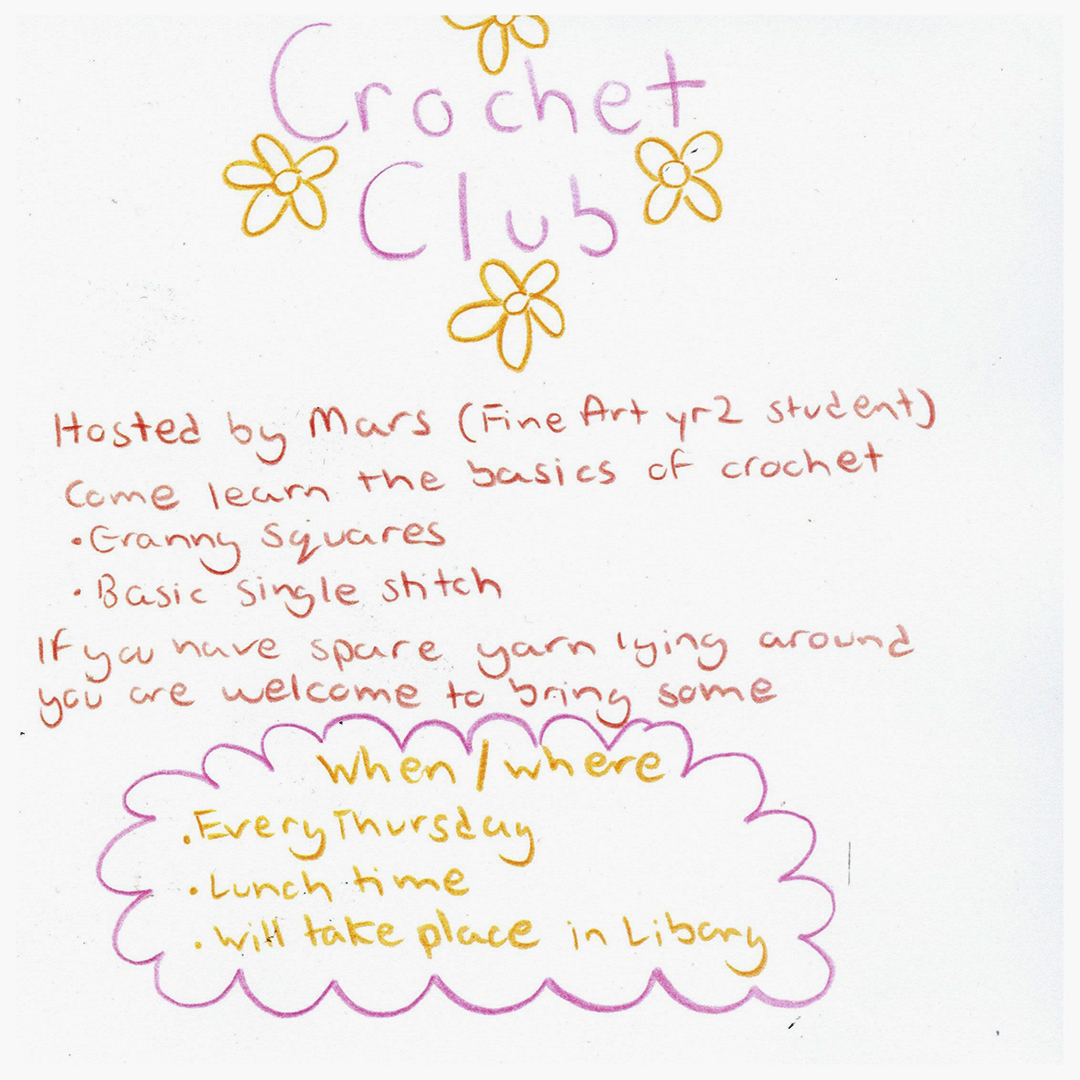 Crochet
Club
Hosted by Mars (Fine Art yr2 student)
Come learn the basics of crochet
• Granny Squares
• Basic single stitch
If you have spare yarn lying around
you are welcome to bring some
When / where
• Every Thursday
• Lunch time
• Will take place in Libary